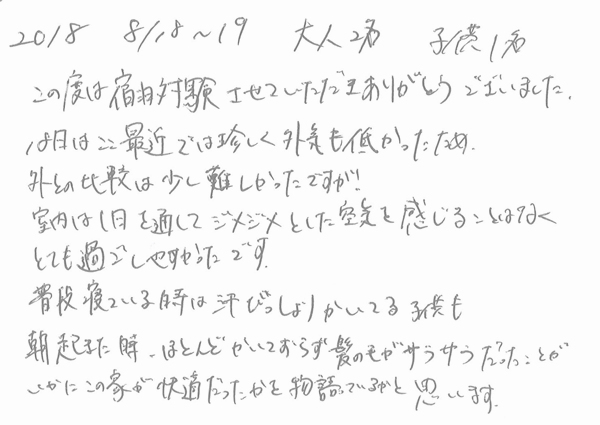 2018 8/18~19 大人2名 子供1名
この度は宿泊体験させていただきありがとうございました。
18日はここ最近では珍しく外気も低かったため、
外との比較は少し難しかったですが!
室内は1日を通してジメジメとした空気を感じることはなく
とても過ごしやすかったです。
普段寝ている時は汗びっしょりかいてる子供も
朝起きた時、ほとんどかいておらず髪の毛がサラサラだったことが
いかにこの家が快適だったかを物語っているかと思います。